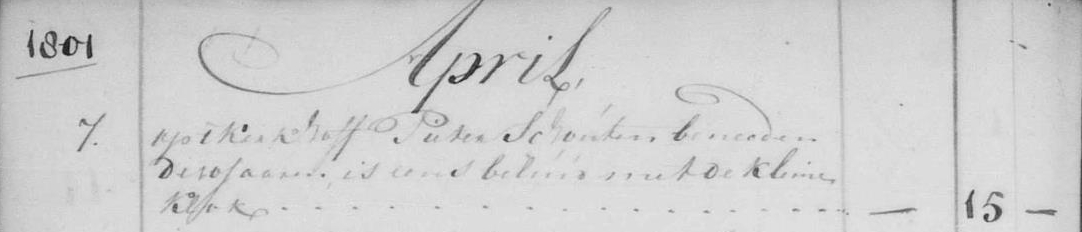 1801
April
7. opt Kerkhoff Pieter Schouten beneeden
de 10 Jaaren, is eens beluid met de kleine
Klok - - - - - - - - - - - - - - - — 15 —